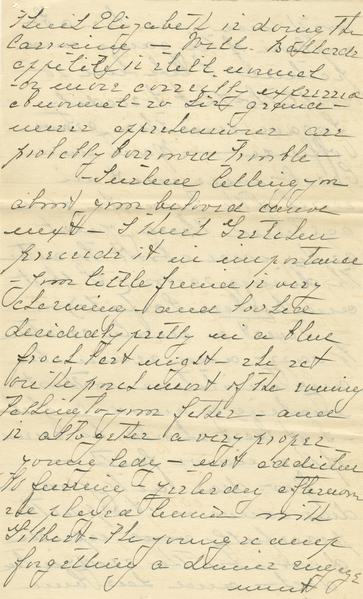 Aunt Elizabeth is doing the
carving — Will. Ballard's
appetite is still normal
- or more correctly expressed
abnormal - so Sir, grand-
apprehensions are
probably borrowed trouble —
- I intend telling you
about your beloved canoe
next - Gretchen
precede it in importance
- your little friend is very
charming - and looked
decidedly pretty in a blue
frock last night - she sat
on the porch most of the evening
talking to your sister - and
is altogether a very proper
young lady - not addicted
to yesterday afternoon
she played tennis with
Gilbert - the young scamp
forgetting a dinner engage
ment